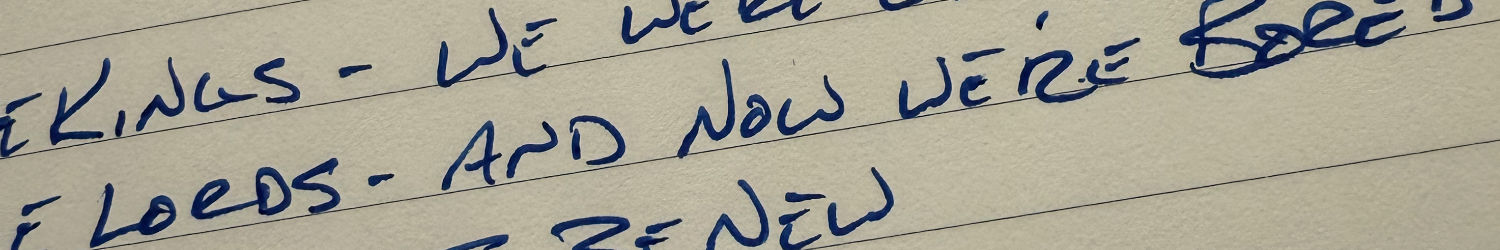 KINGS - WE WERE
LORDS - AND NOW WE'RE BORED
RENEW